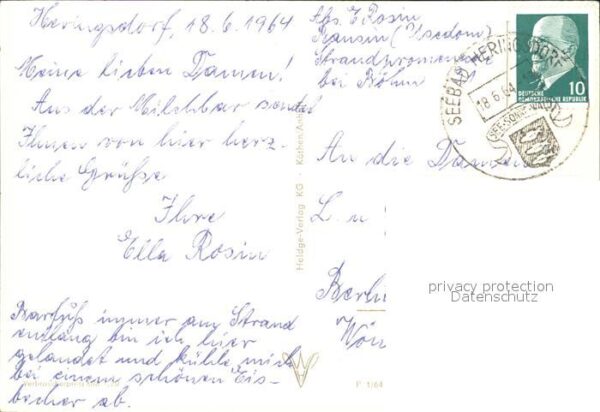 Heringsdorf, 18.6.1964
Meine lieben Damen!
Aus der Milchbar sendet
Ihnen von hier herz-
liche Grüße
Ihre
Ella Rosin
Barfuß immer am Strand
entlang bin ich hier
gelandet und kühle mich
bei einem schönen Eis-
becher ab.
Abs. E. Rosin
Bansin (Usedom)
Strandpromenade
bei Böhm
An die Damen
L. u
Berlin
SEEBAD HERINGSDORF
18.6.64
10
DEUTSCHE
DEMOKRATISCHE REPUBLIK
Heldge-Verlag KG · Köthen-Anh.
privacy protection
Datenschutz